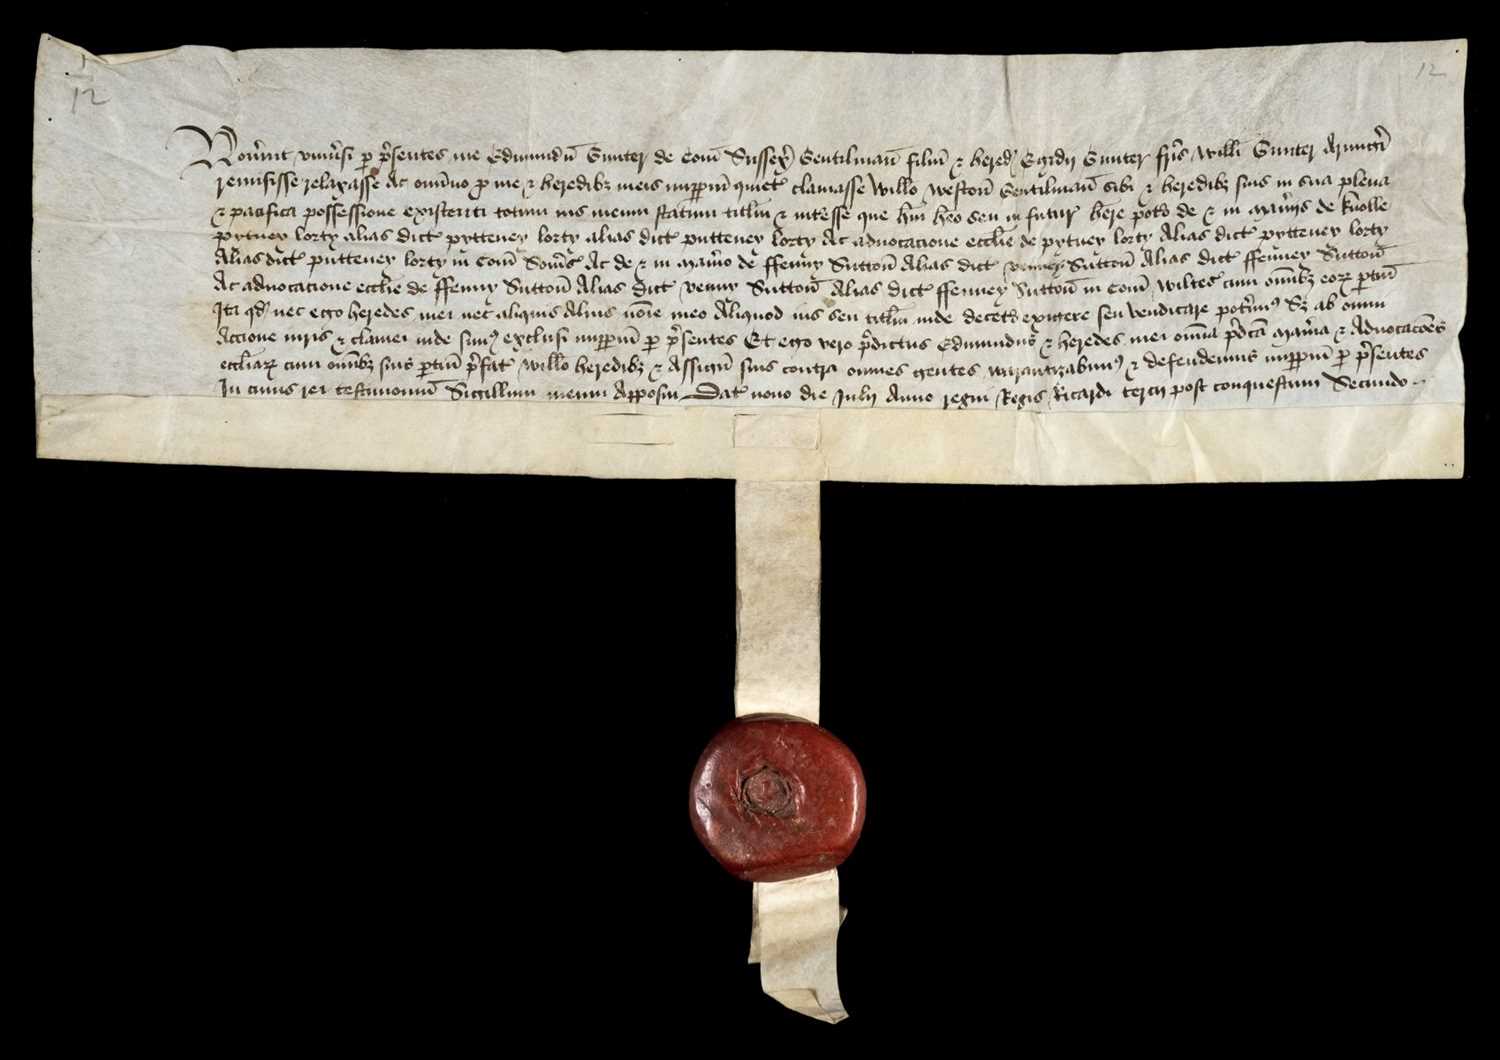 1
12
12
Nov̄int univ̄si p p̄sentes me Edmundū Gunter de Com̄ Sussex̄ Gentilman̄ filiū & hered Egidij Gunter fr̄is Willi Gunter Armiḡi
remisisse relaxasse Ac om̄ino p me & heredibȝ meis imppm̄ quiet clamasse Willo Weston̄ Gentilman̄ sibi & heredibȝ suis in sua plena
& pacifica possessione existenti totum ius meum statum titlm̄ & int̄esse que hūi heo seu in futur̄ h̄ere pot̄o de & in man̄ijs de Knolle
pytney lorty alias dict pytteney lorty alias dict putteney lorty Ac advocacione ecclīe de pytney lorty Alias dict pyttney lorty
Alias dict putteney lorty in Com̄ Som̄s Ac de & in Man̄io de ffenny Sutton̄ Alias dict venney Sutton̄ Alias dict ffenney Sutton̄
Ac advocacione ecclīe de ffenny Sutton̄ Alias dict venny Sutton̄ Alias dict ffenney Sutton̄ in Com̄ Wiltes cum om̄ibȝ eoȝ ptin̄
Ita qd nec ego heredes mei nec aliquis Alius nōie meo Aliquod ius seu titlm̄ inde decet̄o exigere seu vendicare pot̄im9 Sȝ ab om̄i
Accione iuris & clamei inde sim9 exclusi imppm̄ p p̄sentes Et ego vero p̄dictus Edmundus & heredes mei om̄ia p̄dc̄a Man̄ia & Advocacōes
eccliaȝ cum om̄ibȝ suis ptin̄ p̄fat Willo heredibȝ & Assign̄ suis contra omnes gentes Warantizabim9 & defendemus imppm̄ p p̄sentes
In cuius rei testimoniū Sigillum meum Apposui Dat nono die Julij Anno regni Regis Ricardi tercij post conquestum Secundo